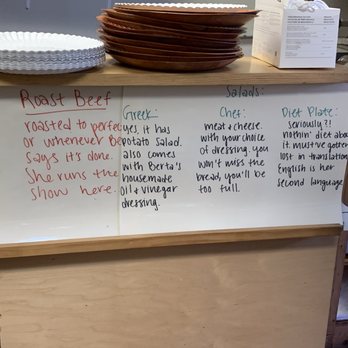 Roast Beef
roasted to perfec
or whenever Be
says it's done.
She runs the
show here.
Salads:
Greek:
yes, it has
potato salad.
also comes
with Berta's
housemade
oil & vinegar
dressing.
Chef:
meat & cheese.
with your choice
of dressing. you
won't miss the
bread, you'll be
too full.
Diet Plate:
seriously?!
nothin' diet abou
it. must've gotten
lost in translation.
English is her
second language.